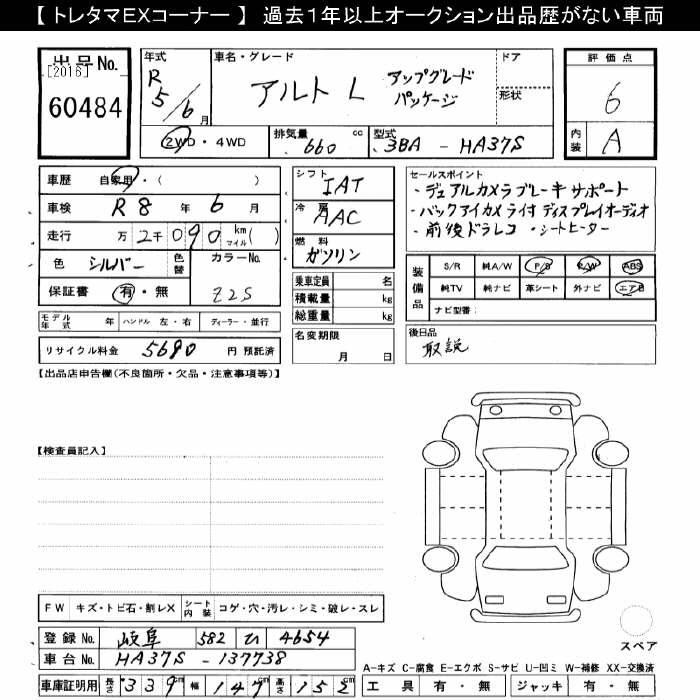 【 トレタマEXコーナー 】 過去1年以上オークション出品歴がない車両
出品No.
[2016]
60484
年式
R5/6月
車名・グレード
アルト L アップグレードパッケージ
ドア
形状
評価点
6
内装
A
2WD・4WD
排気量
660 cc
型式
3BA - HA37S
車歴 自家用・( )
車検 R8年 6月
走行 万 2千 090 km マイル ( )
色 シルバー
色替
カラーNo. Z2S
保証書 有・無
シフト
IAT
冷房
AAC
燃料
ガソリン
乗車定員 名
積載量 kg
総重量 kg
セールスポイント
・デュアルカメラブレーキサポート
・バックアイカメラ付ディスプレイオーディオ
・前後ドラレコ ・シートヒーター
装備品
S/R 純A/W P/S P/W ABS
純TV 純ナビ 革シート 外ナビ エアB
ナビ型番:
モデル年式 年 ハンドル 左・右 ディーラー・並行
リサイクル料金 5690 円 預託済
名変期限
月 日
後日品
取説
【出品店申告欄(不良箇所・欠品・注意事項等)】
【検査員記入】
FW キズ・トビ石・割レX シート内装 コゲ・穴・汚レ・シミ・破レ・スレ
登録No. 岐阜 582 ひ 4654
車台No. HA37S - 137738
車庫証明用 長さ 339cm 幅 147cm 高さ 152cm
スペア
A-キズ C-腐食 E-エクボ S-サビ U-凹ミ W-補修 XX-交換済
工具 有・無 ジャッキ 有・無